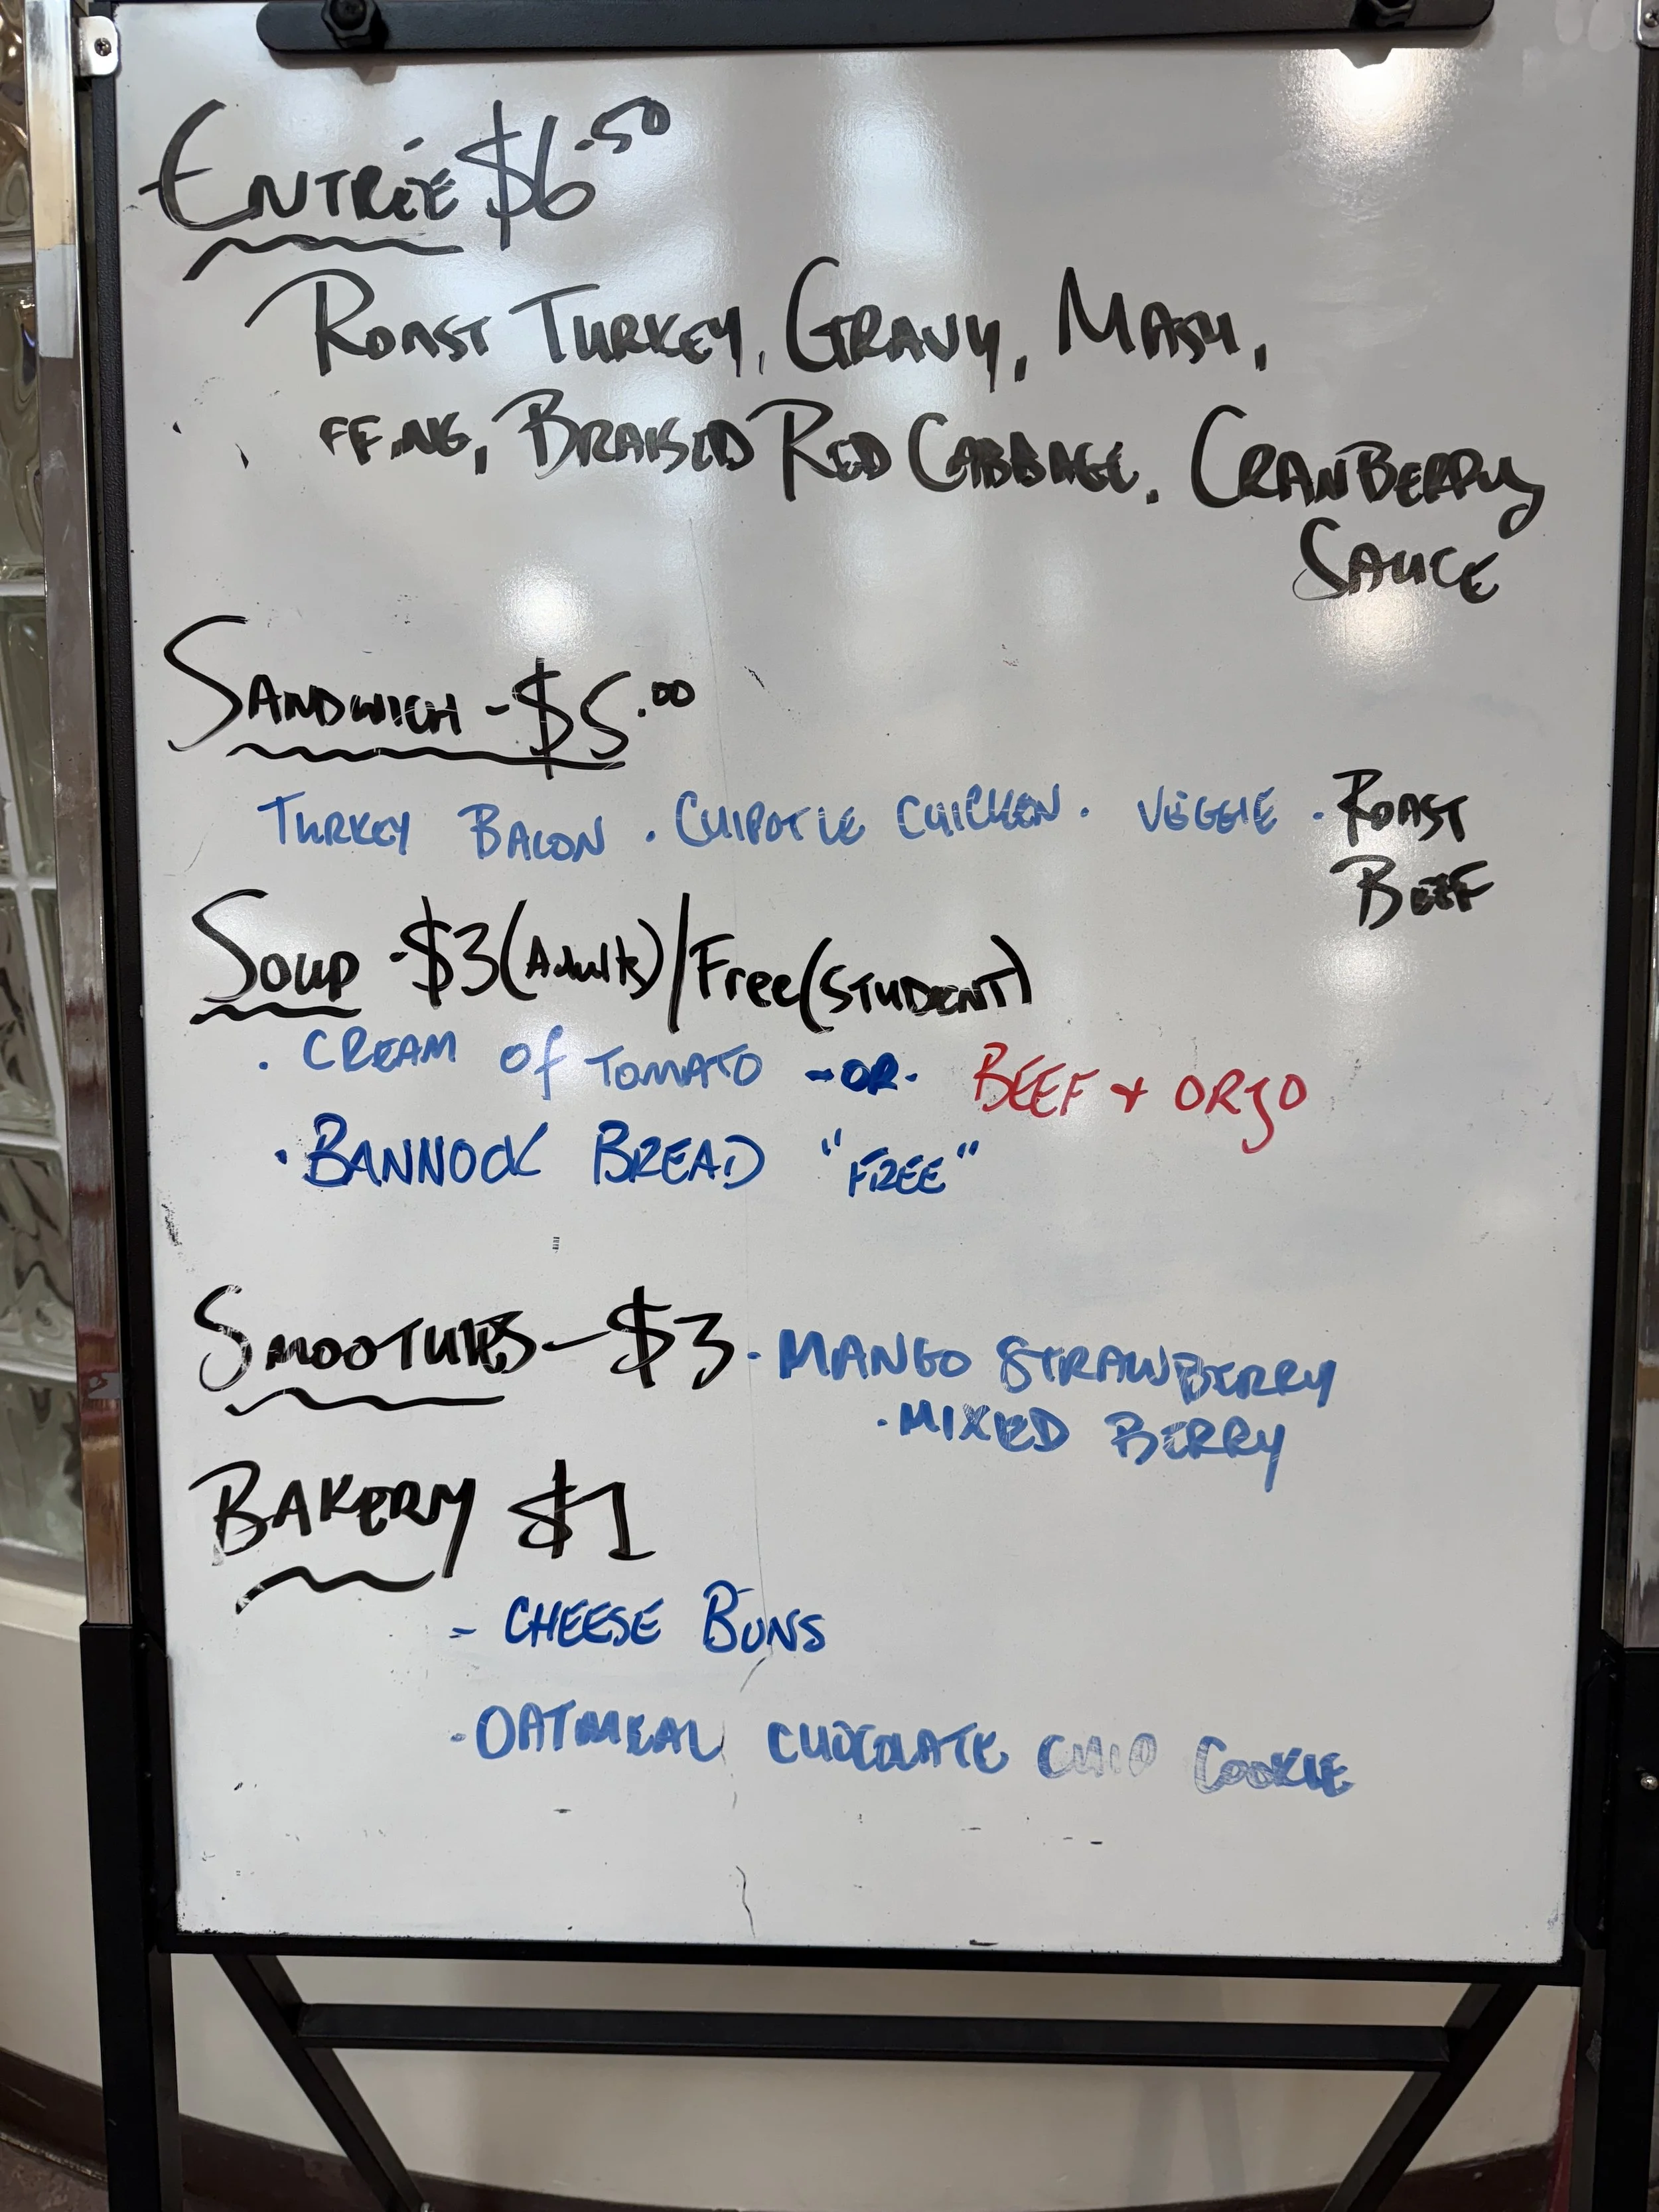 ENTRÉE $6.50
ROAST TURKEY, GRAVY, MASH,
FFING, BRAISED RED CABBAGE, CRANBERRY
SAUCE
SANDWICH - $5.00
TURKEY BACON · CHIPOTLE CHICKEN · VEGGIE · ROAST
BEEF
SOUP - $3 (Adults) / Free (STUDENT)
· CREAM of TOMATO - OR - BEEF + ORZO
· BANNOCK BREAD "FREE"
SMOOTHIES - $3 · MANGO STRAWBERRY
· MIXED BERRY
BAKERY $1
- CHEESE BUNS
· OATMEAL CHOCOLATE CHIP COOKIE